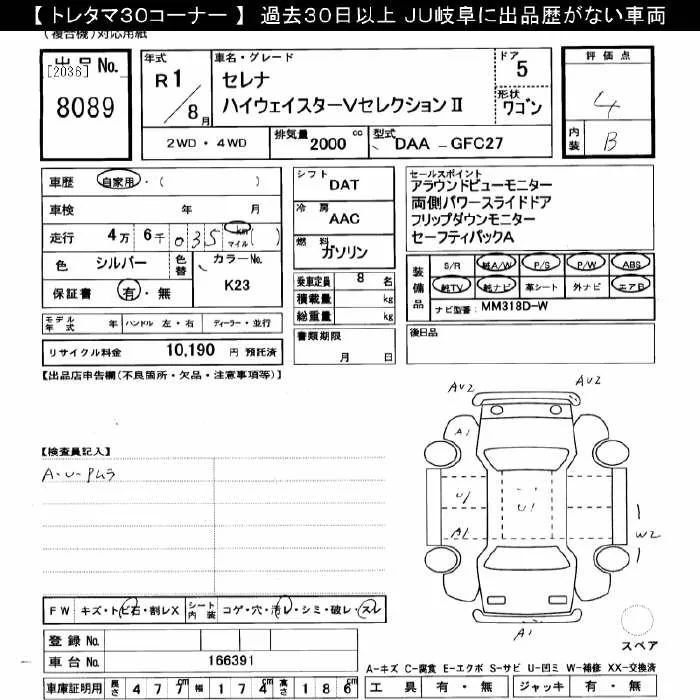 【 トレタマ30コーナー 】 過去30日以上 JU岐阜に出品歴がない車両
(複合機)対応用紙
出品 No.
[2036]
8089
年式
R1/8月
車名・グレード
セレナ
ハイウェイスターVセレクションⅡ
ドア
5
形状
ワゴン
2WD・4WD
排気量 2000 cc
型式 DAA - GFC27
評価点
4
内装 B
車歴 自家用・( )
車検 年 月
走行 4万 6千 035 km マイル ( )
色 シルバー 色替 カラーNo.
K23
保証書 有・無
モデル年式 年 ハンドル 左・右 ディーラー・並行
リサイクル料金 10,190 円 預託済
シフト
DAT
冷房
AAC
燃料
ガソリン
乗車定員 8 名
積載量 kg
総重量 kg
書類期限
月 日
セールスポイント
アラウンドビューモニター
両側パワースライドドア
フリップダウンモニター
セーフティパックA
装備品
S/R 純A/W P/S P/W ABS
純TV 純ナビ 革シート 外ナビ エアB
ナビ型番: MM318D-W
後日品
【出品店申告欄(不良箇所・欠品・注意事項等)】
【検査員記入】
A・U・Pムラ
AU2
AU2
A1
U1
U1
A1
W2
A1
スペア
FW キズ・トビ石・割レX シート内装 コゲ・穴・汚レ・シミ・破レ・スレ
登録 No.
車台 No. 166391
車庫証明用 長さ 477cm 幅 174cm 高さ 186cm
A-キズ C-腐食 E-エクボ S-サビ U-凹ミ W-補修 XX-交換済
工具 有・無 ジャッキ 有・無